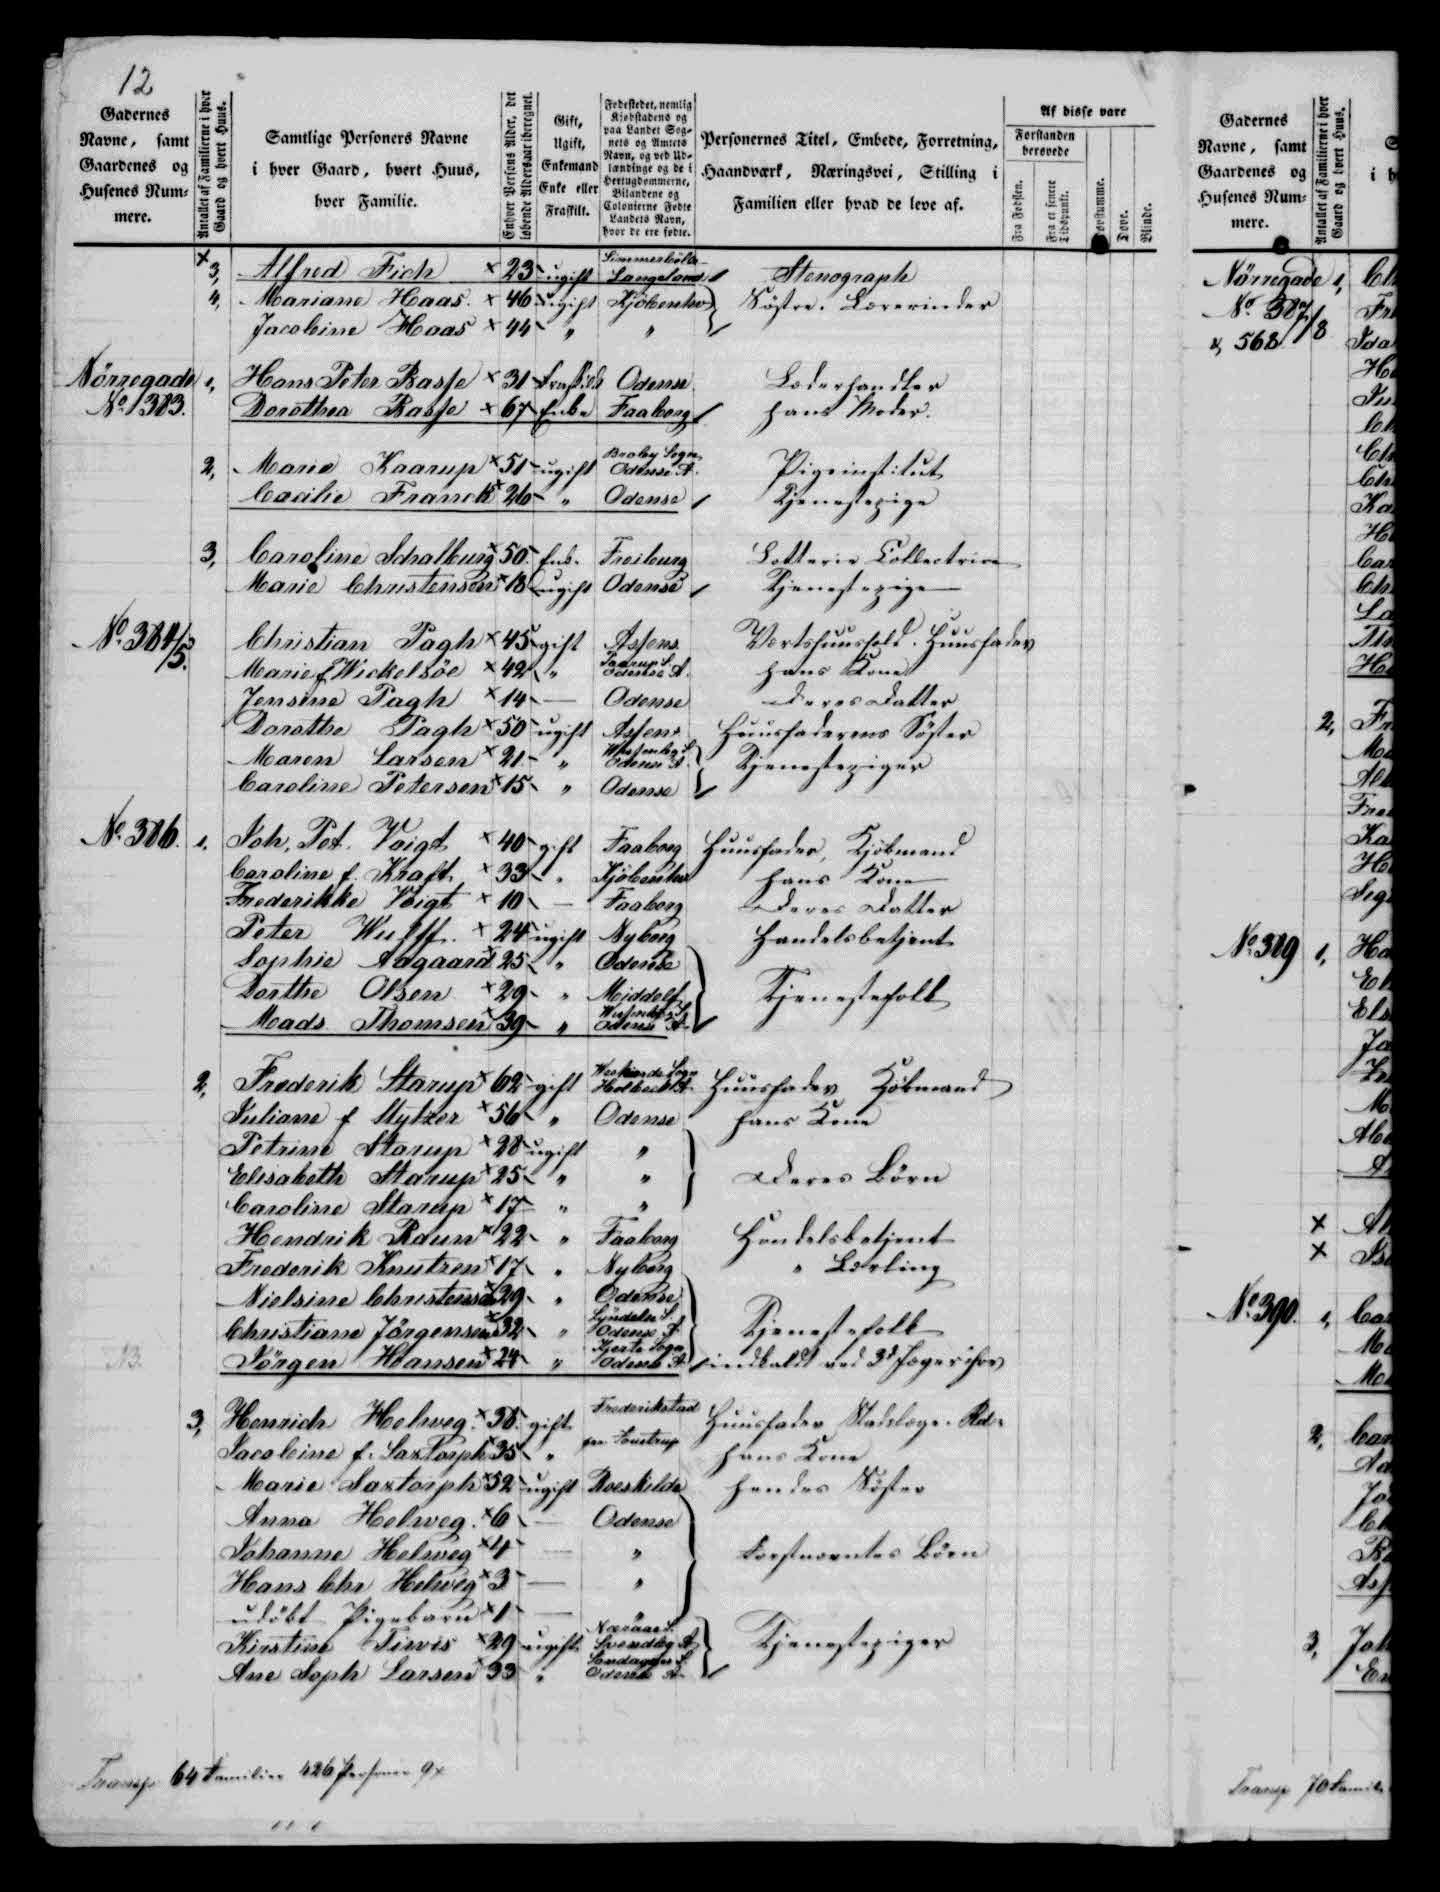 12
Gadernes Navne, samt Gaardenes og Husenes Nummere.
Antallet af Familierne i hver Gaard og hvert Huus.
Samtlige Personers Navne i hver Gaard, hvert Huus, hver Familie.
Enhver Persons Alder, det løbende Aldersaar iberegnet.
Gift, Ugift, Enkemand Enke eller Fraskilt.
Fødestedet, nemlig Kjøbstadens og paa Landet Sognets og Amtets Navn, og ved Udlændinge og de i Hertugdømmerne, Bilandene og Colonierne Fødte Landets Navn, hvor de ere fødte.
Personernes Titel, Embede, Forretning, Haandværk, Næringsvei, Stilling i Familien eller hvad de leve af.
Af disse vare
Forstanden berøvede
Fra Fødsen.
Fra et senere Tidspunkt.
Døvstumme.
Døve.
Blinde.
3, Alfred Fich × 23 ugift Langeland Stenograph
4, Mariane Haas × 46 ugift Kjöbenhvn Söstre. Lærerinder
Jacobine Haas × 44 " "
Nörregade 1, Hans Peter Basse × 31 fraskilt Odense Læderhandler
No 383. Dorothea Basse × 67 Enke Faaborg hans Moder.
2, Marie Kaarup × 51 ugift Broby Sogn Odense A. Pigeinstitut
Cæcilie Franck × 26 " Odense Tjenestepige
3, Caroline Schalburg × 50 Enke Freiburg Lotterie Collectrice
Marie Christensen × 18 ugift Odense Tjenestepige
No 384/5. Christian Pagh × 45 gift Assens Værtshuushold. Huusfader
Marie f Wickelsöe × 42 " Paarup S. Odense A. hans Kone
Jensine Pagh × 14 — Odense Deres Datter
Dorothe Pagh × 50 ugift Assens Huusfaderens Söster
Maren Larsen × 21 " Odense A. Tjenestepiger
Caroline Petersen × 15 " Odense
No 386. 1, Joh. Pet. Voigt × 40 gift Faaborg Huusfader, Kjöbmand
Caroline f. Kraft × 33 " Kjöbenhvn hans Kone
Frederikke Voigt × 10 — Faaborg Deres Datter
Peter Wulff × 24 ugift Nyborg Handelsbetjent
Sophie Aagaard × 25 " Odense
Dorthe Olsen × 29 " Middelf. Tjenestefolk
Mads Thomsen × 39 " Odense A
2, Frederik Starup × 62 gift Holbeck A. Huusfader Kjöbmand
Juliane f Stylzer × 56 " Odense hans Kone
Petrine Starup × 28 ugift "
Elisabeth Starup × 25 " " Deres Börn
Caroline Starup × 17 " "
Hendrik Raun × 22 " Faaborg Handelsbetjent
Frederik Knutzen × 17 " Nyborg " Lærling
Nielsine Christensen × 29 " Odense
Christiane Jörgensen × 32 " Odense A Tjenestefolk
Jörgen Hansen × 24 " Kjerte Sogn Odense A indkaldt ved 3d Jægerchor
3, Henrich Helweg × 38 gift Frederikstad Huusfader
Jacobine f. Saxtorph × 35 " hans Kone
Marie Saxtorph × 52 ugift Roeskilde hendes Söster
Anna Helweg × 6 — Odense
Johanne Helweg × 4 — " Förstnævntes Börn
Hans Chr Helweg × 3 — "
udöbt Pigebarn × 1 — "
Kirstine × 29 ugift Næraae S. Svendbg A Tjenestepiger
Ane Soph Larsen × 33 " Odense A
Transp 64 Familier 426 Personer 9×
Gadernes Navne, samt Gaardenes og Husenes Nummere.
Antallet af Familierne i hver Gaard og hvert Huus.
Nörregade 1,
No 387/8
568
2,
No 389 1,
×
×
No 390. 1,
2,
3,
Transp 70 Famili